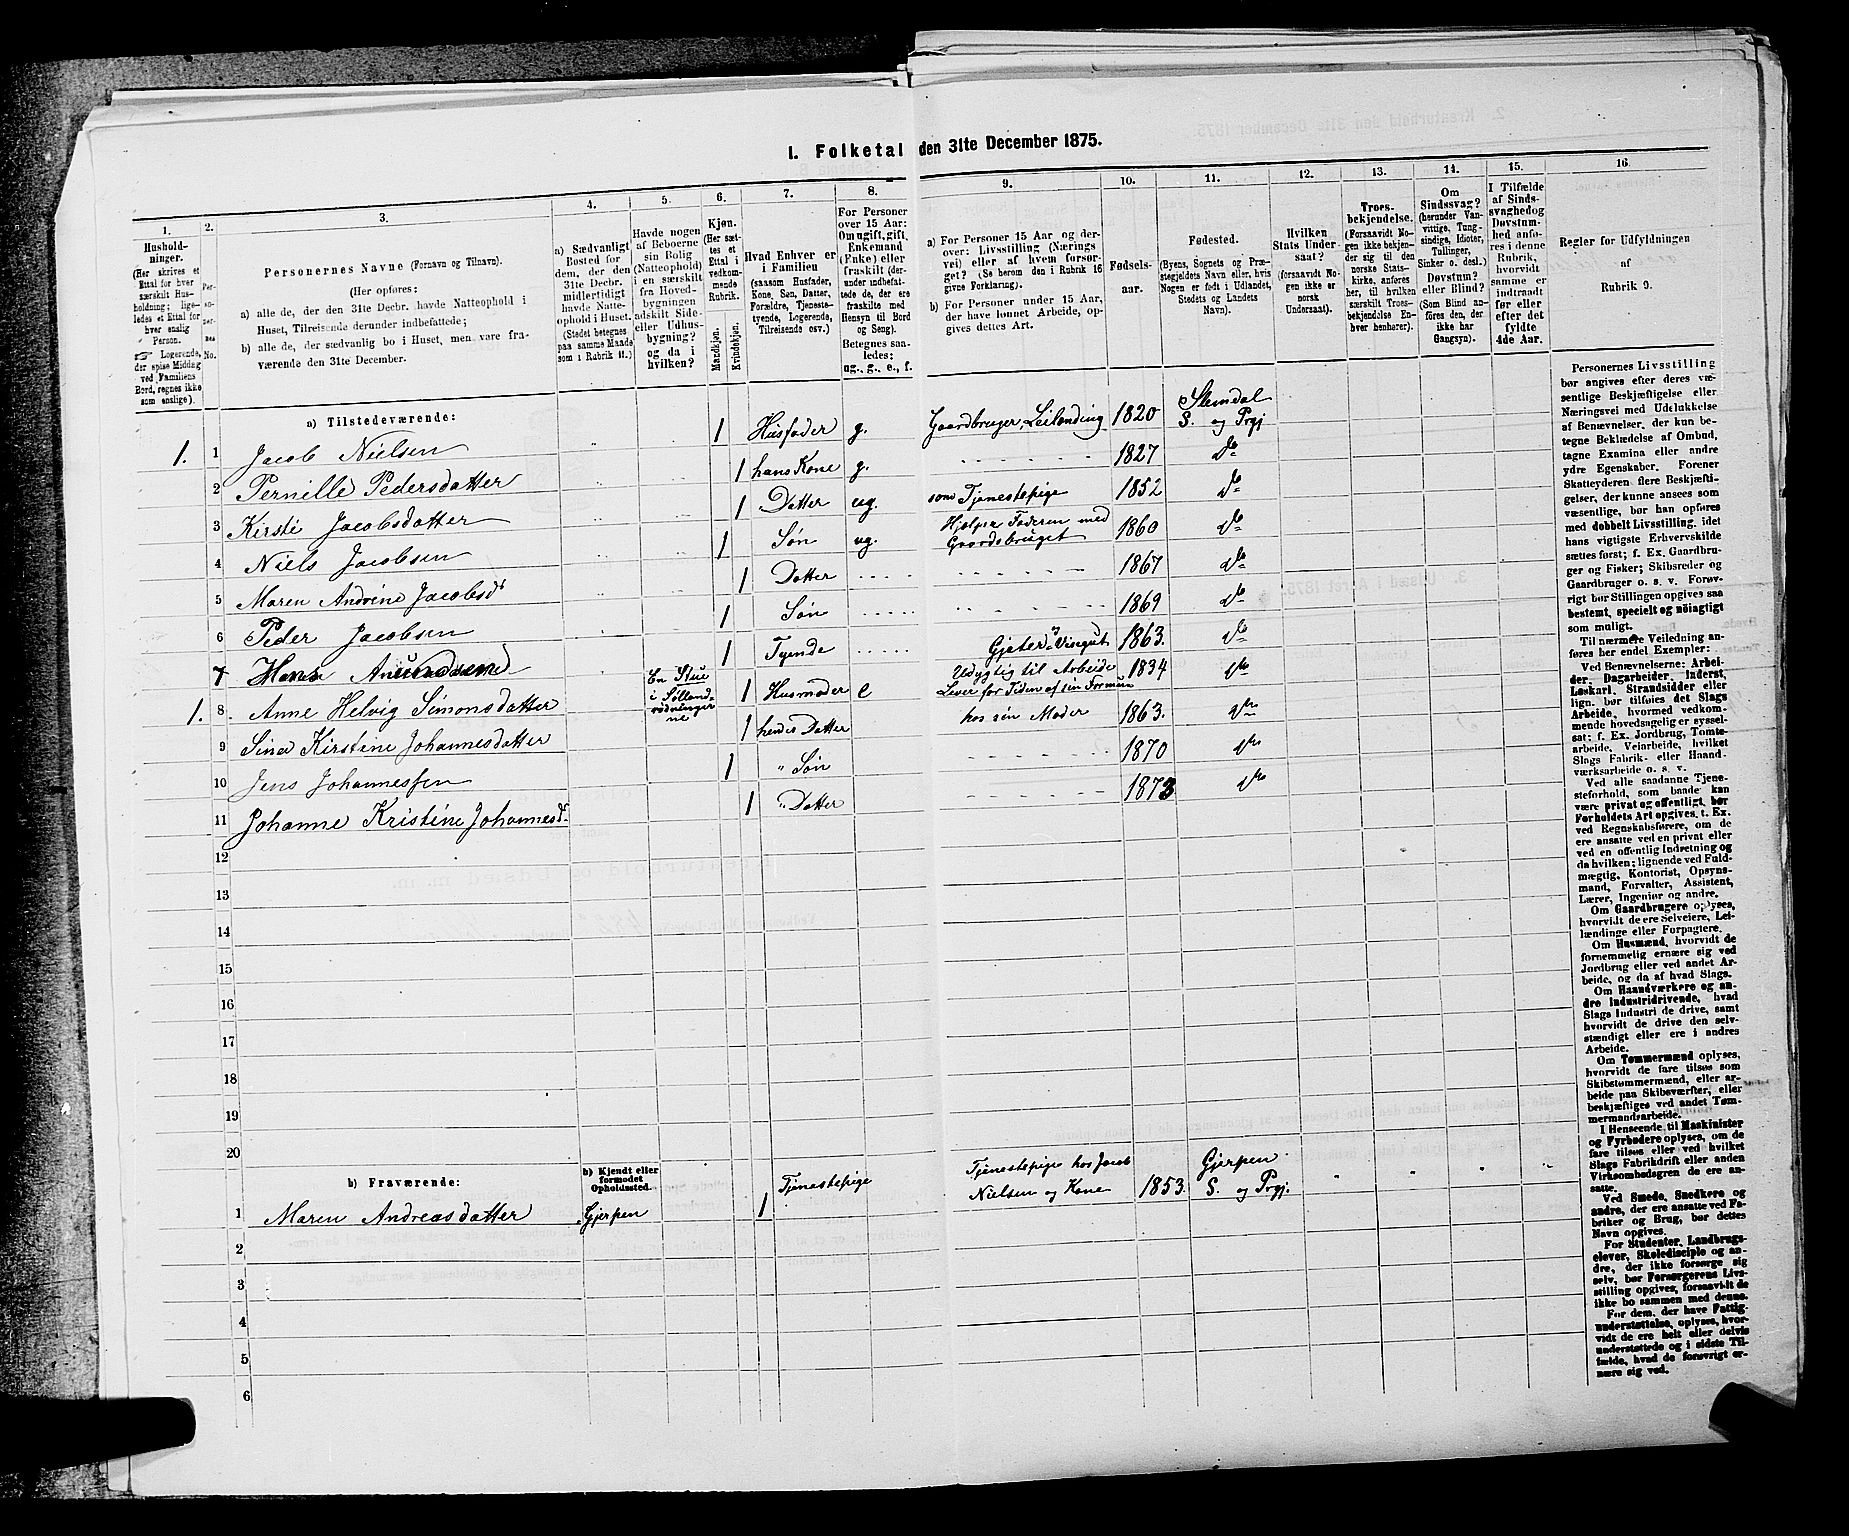 I. Folketal den 31te December 1875.
1. 2. 3. 4. 5. 6. 7. 8. 9. 10. 11. 12. 13. 14. 15. 16.
Husholdninger. (Her skrives et Ettal for hver særskilt Husholdning; ligeledes et Ettal for hver enslig Person. ☞ Logerende, der spise Middag ved Familiens Bord, regnes ikke som enslige).
Personernes No.
Personernes Navne (Fornavn og Tilnavn).
(Her opføres:
a) alle de, der den 31te Decbr. havde Natteophold i Huset, Tilreisende derunder indbefattede;
b) alle de, der sædvanlig bo i Huset, men vare fraværende den 31te December.
a) Sædvanligt Bosted for dem, der den 31te Decbr. midlertidigt havde Natteophold i Huset. (Stedet betegnes paa samme Maade som i Rubrik 11.)
Havde nogen af Beboerne sin Bolig (Natteophold) i en særskilt fra Hovedbygningen adskilt Side- eller Udhusbygning? og da i hvilken?
Kjøn. (Her sættes et Ettal i vedkommende Rubrik.
Mandkjøn. Kvindekjøn.
Hvad Enhver er i Familien (saasom Husfader, Kone, Søn, Datter, Forældre, Tjenestetyende, Logerende, Tilreisende osv.)
For Personer over 15 Aar: Om ugift, gift, Enkemand (Enke) eller fraskilt (derunder indbefattede de, der ere fraskilte med Hensyn til Bord og Seng). Betegnes saaledes: ug., g., e., f.
a) For Personer 15 Aar og derover: Livsstilling (Næringsvei) eller af hvem forsørget? (Se herom den i Rubrik 16 givne Forklaring).
b) For Personer under 15 Aar, der have lønnet Arbeide, opgives dettes Art.
Fødselsaar.
Fødested. (Byens, Sognets og Præstegjeldets Navn eller, hvis Nogen er født i Udlandet, Stedets og Landets Navn).
Hvilken Stats Undersaat? (forsaavidt Nogen ikke er norsk Undersaat).
Troesbekjendelse. (Forsaavidt Nogen ikke bekjender sig til den norske Statskirke, anføres her, til hvilken særskilt Troesbekjendelse Enhver henhører).
Om Sindssvag? (herunder Vanvittige, Tungsindige, Idioter, Tullinger, Sinker o. desl.) Døvstum? eller Blind? (Som Blind anføres den, der ikke har Gangsyn).
I Tilfælde af Sindssvaghed og Døvstumhed anføres i denne Rubrik, hvorvidt samme er indtraadt før eller efter det fyldte 4de Aar.
Regler for Udfyldningen af Rubrik 9.
a) Tilstedeværende:
1. 1 Jacob Nielsen 1 Husfader g. Gaardbruger, Leilending 1820 Slemdal S. og Prgj
2 Pernille Pedersdatter 1 hans Kone g. 1827 do
3 Kirsti Jacobsdatter 1 Datter ug. som Tjenestepige 1852 do
4 Niels Jacobsen 1 Søn ug. Hjelper Faderen med Gaardsbruget 1860 do
5 Maren Andrine Jacobsd 1 Datter 1867 do
6 Peder Jacobsen 1 Søn 1869 do
7 Hans 1 Tyende Gjeter 1863. do
1. 8. Anne Helvig Simonsdatter En Stue i 1 Husmoder e Udygtig til Arbeide Lever for Tiden af sin Formue 1834 do
9 Sina Kirstine Johannesdatter 1 hendes Datter hos sin Moder 1863. do
10 Jens Johannessen 1 " Søn 1870 do
11 Johanne Kristine Johannesd. 1 " Datter 1873 do
12
13
14
15
16
17
18
19
20
b) Fraværende:
b) Kjendt eller formodet Opholdssted.
1 Maren Andreasdatter Gjerpen 1 Tjenestepige Tjenestepige hos Jacob Nielsen og Kone 1853. Gjerpen S. og Prgj.
2
3
4
5
6
Personernes Livsstilling bør angives efter deres væsentlige Beskjæftigelse eller Næringsvei med Udelukkelse af Benævnelser, der kun betegne Beklædelse af Ombud, tagne Examina eller andre ydre Egenskaber. Forener Skatteyderen flere Beskjæftigelser, der kunne ansees som væsentlige, bør han opføres med dobbelt Livsstilling, idet hans vigtigste Erhvervskilde sættes først; f. Ex. Gaardbruger og Fisker; Skibsreder og Gaardbruger o. s. v. Forøvrigt bør Stillingen opgives saa bestemt, specielt og nøiagtigt som muligt.
Til nærmere Veiledning anføres her endel Exempler:
Ved Benævnelserne: Arbeider, Dagarbeider, Inderst, Løskarl, Strandsidder eller lign. bør tilføies det Slags Arbeide, hvormed vedkommende hovedsagelig er sysselsat; f. Ex. Jordbrug, Tomtearbeide, Veiarbeide, hvilket Slags Fabrik- eller Haandværksarbeide o. s. v.
Ved alle saadanne Tjenesteforhold, som baade kan være privat og offentligt, bør Forholdets Art opgives, t. Ex. ved Regnskabsførere, om de ere ansatte ved en privat eller ved en offentlig Indretning og da hvilken; lignende ved Fuldmægtig, Kontorist, Opsynsmand, Forvalter, Assistent, Lærer, Ingeniør og andre.
Om Gaardbrugere oplyses, hvorvidt de ere Selveiere, Leilændinge eller Forpagtere.
Om Husmænd, hvorvidt de fornemmelig ernære sig ved Jordbrug eller ved andet Arbeide, og da af hvad Slags.
Om Haandværkere og andre Industridrivende, hvad Slags Industri de drive, samt hvorvidt de drive den selvstændigt eller ere i andres Arbeide.
Om Tømmermænd oplyses, hvorvidt de fare tilsøs som Skibstømmermænd, eller arbeide paa Skibsværfter, eller beskjæftiges ved andet Tømmermandsarbeide.
I Henseende til Maskinister og Fyrbødere oplyses, om de fare tilsøs eller ved hvilket Slags Fabrikdrift eller anden Virksomhedsgren de ere ansatte.
Ved Smede, Snedkere og andre, der ere ansatte ved Fabriker og Brug, bør dettes Navn opgives.
For Studenter, Landbrugselever, Skoledisciple og andre, der ikke forsørge sig selv, bør Forsørgerens Livsstilling opgives, forsaavidt de ikke bo sammen med denne.
For dem, der have Fattigunderstøttelse, oplyses, hvorvidt de ere helt eller delvis understøttede og i sidste Tilfælde, hvad de forøvrigt ernære sig ved.